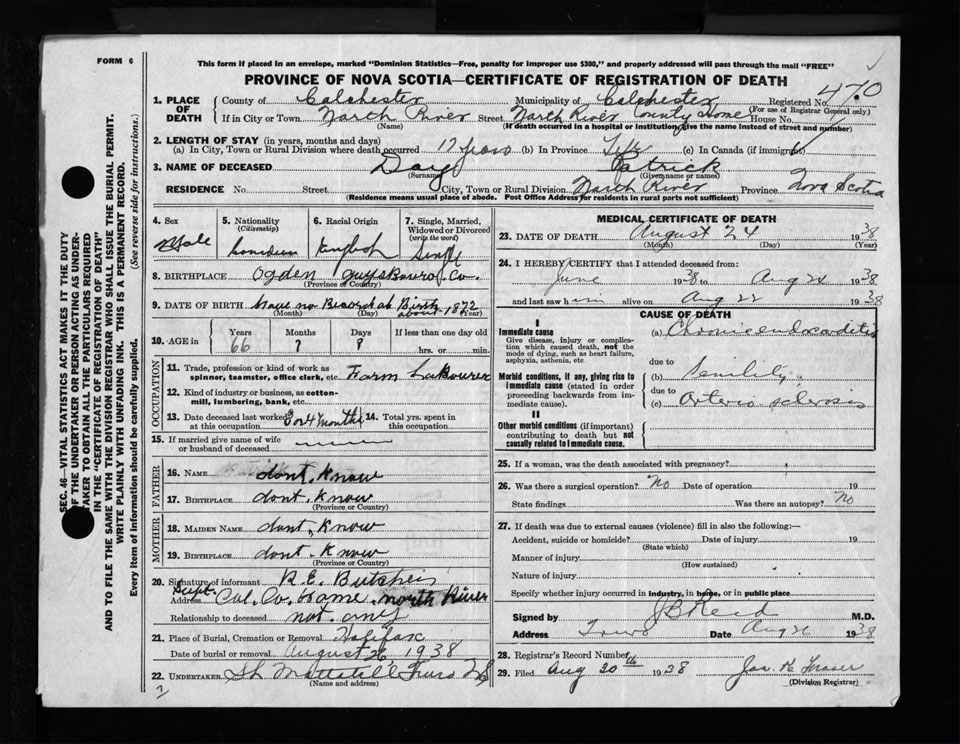 FORM 6
This form if placed in an envelope, marked "Dominion Statistics—Free, penalty for improper use $300," and properly addressed will pass through the mail "FREE"
PROVINCE OF NOVA SCOTIA—CERTIFICATE OF REGISTRATION OF DEATH
470
1. PLACE OF DEATH
County of Colchester Municipality of Colchester Registered No.
(For use of Registrar General only)
If in City or Town North River Street North River County Home House No.
(Name) (If death occurred in a hospital or institution, give the name instead of street and number)
2. LENGTH OF STAY (in years, months and days)
(a) In City, Town or Rural Division where death occurred 17 years (b) In Province Life (c) In Canada (if immigrant)
3. NAME OF DECEASED Day Patrick
(Surname) (Given name or names)
RESIDENCE No. Street City, Town or Rural Division North River Province Nova Scotia
(Residence means usual place of abode. Post Office Address for residents in rural parts not sufficient)
SEC. 46—VITAL STATISTICS ACT MAKES IT THE DUTY
OF THE UNDERTAKER OR PERSON ACTING AS UNDER-
TAKER TO OBTAIN ALL THE PARTICULARS REQUIRED
IN THE "CERTIFICATE OF REGISTRATION OF DEATH"
AND TO FILE THE SAME WITH THE DIVISION REGISTRAR WHO SHALL ISSUE THE BURIAL PERMIT.
WRITE PLAINLY WITH UNFADING INK. THIS IS A PERMANENT RECORD.
Every item of information should be carefully supplied. (See reverse side for instructions.)
4. Sex
Male
5. Nationality
(Citizenship)
Canadian
6. Racial Origin
English
7. Single, Married,
Widowed or Divorced
(write the word)
Single
8. BIRTHPLACE Ogden Guysboro Co.
(Province or Country)
9. DATE OF BIRTH have no Record of Birth about 1872
(Month) (Day) (Year)
10. AGE in
Years Months Days If less than one day old
66 ? ? hrs. or min.
OCCUPATION
11. Trade, profession or kind of work as
spinner, teamster, office clerk, etc. Farm Labourer
12. Kind of industry or business, as cotton-
mill, lumbering, bank, etc.
13. Date deceased last worked at this occupation 3 or 4 months
14. Total yrs. spent in this occupation
15. If married give name of wife
or husband of deceased
FATHER
16. NAME dont, know
17. BIRTHPLACE dont. know
(Province or Country)
MOTHER
18. MAIDEN NAME dont, know
19. BIRTHPLACE dont. know
(Province or Country)
20. Signature of informant R. E. Butcher
Address Supt. Col. Co. Home. North River
Relationship to deceased not any
21. Place of Burial, Cremation or Removal Halifax
Date of burial or removal August 26 1938
22. UNDERTAKER Mattatall Truro NS
(Name and address)
MEDICAL CERTIFICATE OF DEATH
23. DATE OF DEATH August 24 1938
(Month) (Day) (Year)
24. I HEREBY CERTIFY that I attended deceased from:
June 1938 to Aug 24 1938
and last saw him alive on Aug 22 1938
CAUSE OF DEATH
I
Immediate cause
Give disease, injury or complica-
tion which caused death, not the
mode of dying, such as heart failure,
asphyxia, asthenia, etc.
(a) Chronic endocarditis
due to
Morbid conditions, if any, giving rise to
immediate cause (stated in order
proceeding backwards from im-
mediate cause).
(b) Senility
due to
(c) Arterio sclerosis
II
Other morbid conditions (if important)
contributing to death but not
causally related to immediate cause.
25. If a woman, was the death associated with pregnancy?
26. Was there a surgical operation? No Date of operation 19
State findings Was there an autopsy? No
27. If death was due to external causes (violence) fill in also the following:—
Accident, suicide or homicide? Date of injury 19
(State which)
Manner of injury
(How sustained)
Nature of injury
Specify whether injury occurred in industry, in home, or in public place
Signed by J B Reid M.D.
Address Truro Date Aug 26 1938
28. Registrar's Record Number
29. Filed Aug 30th 1938 Jas. K Fraser
(Division Registrar)